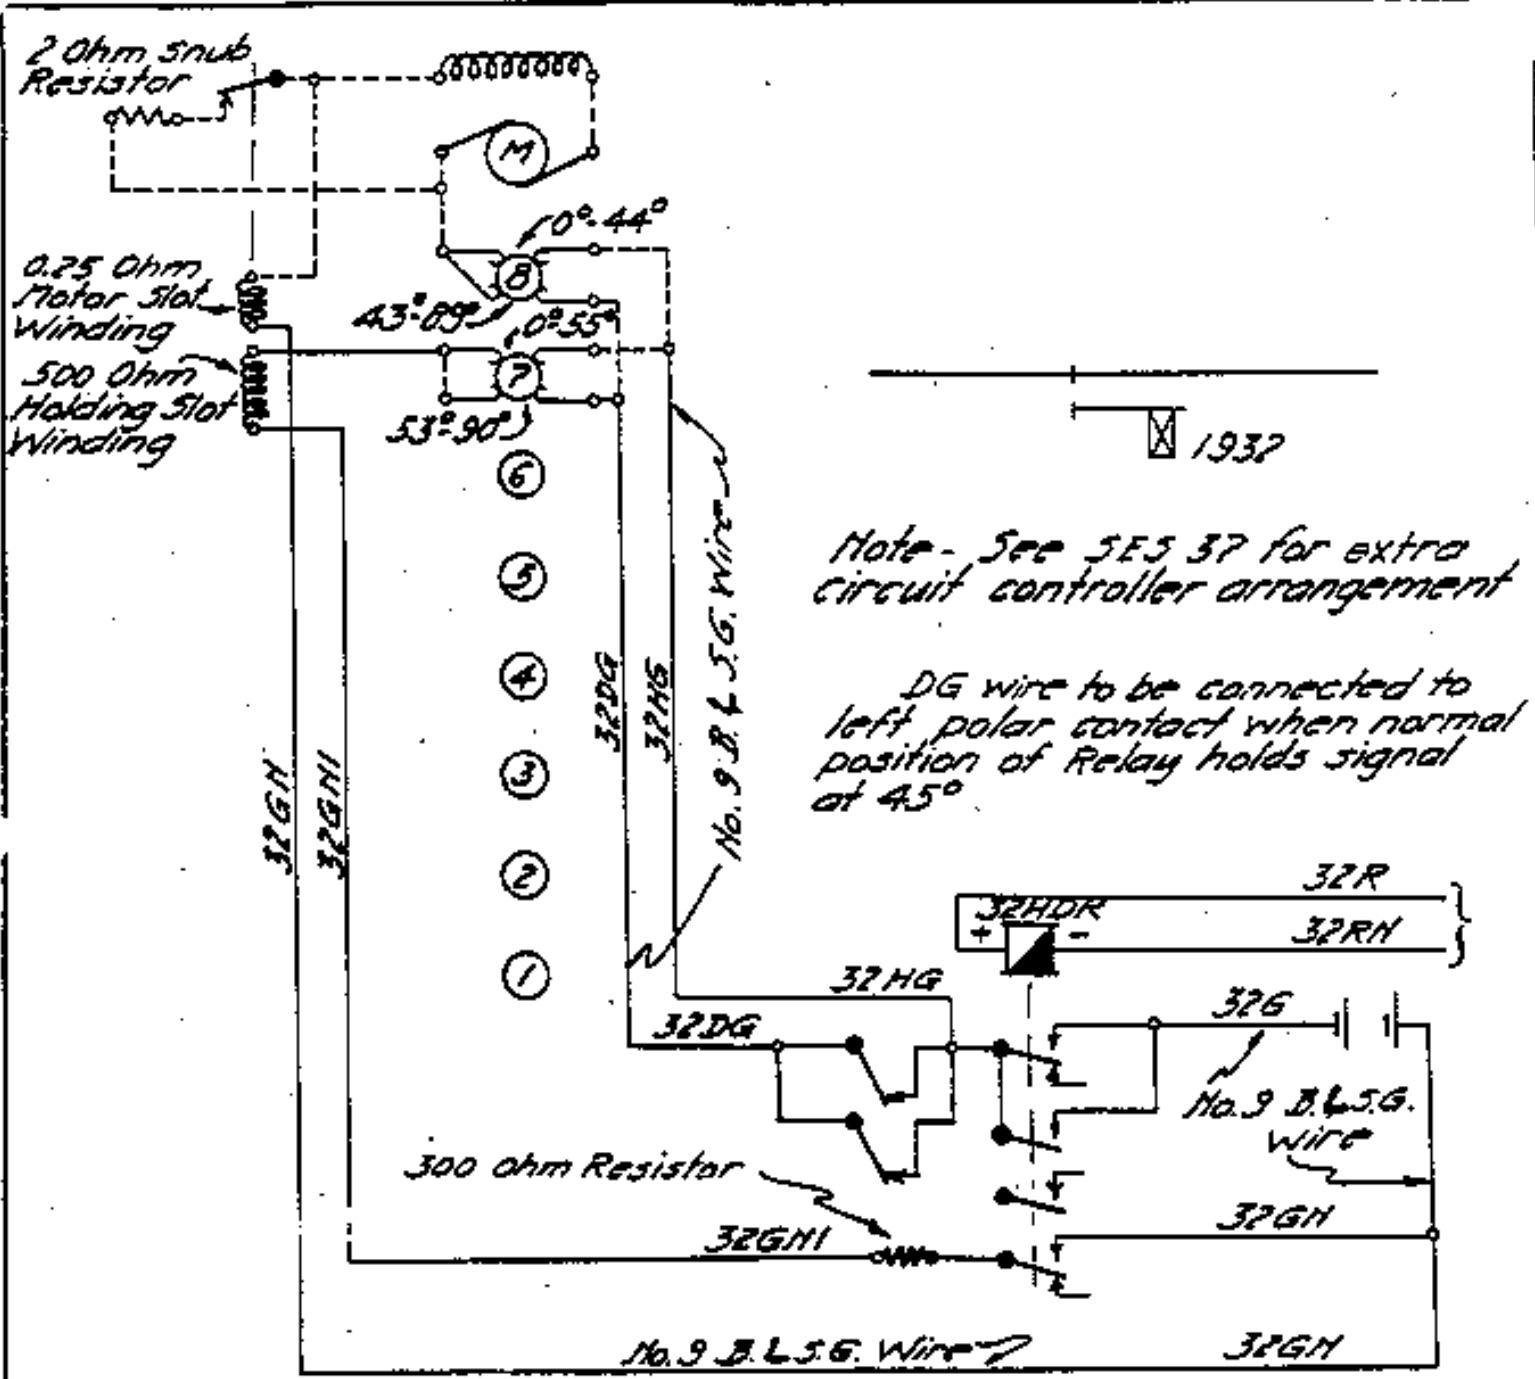 2 Ohm Snub
Resistor
M
0°-44°
8
43°-89°
0.25 Ohm
Motor Slot
Winding
0°-55°
7
53°-90°
500 Ohm
Holding Slot
Winding
6
5
4
3
2
1
1932
Note- See SES 37 for extra
circuit controller arrangement
DG wire to be connected to
left polar contact when normal
position of Relay holds signal
at 45°
32GN
32GN1
32DG
32HG
No. 9 B. & S.G. Wire
32R
32HDR
+ -
32RN
32HG
32DG
32G
No. 9 B.&S.G.
Wire
300 Ohm Resistor
32GN1
32GN
No. 9 B.&S.G. Wire
32GN